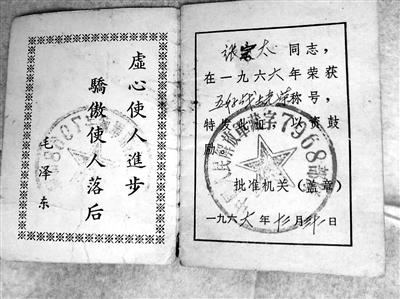 虛心使人進步
驕傲使人落后
毛泽东
张宏太同志,
在一九六六年荣获
五好战士光荣称号,
特发此证,以资鼓
励。
批准机关(盖章)
一九六六年十二月三十一日
中国人民解放军临字7968部